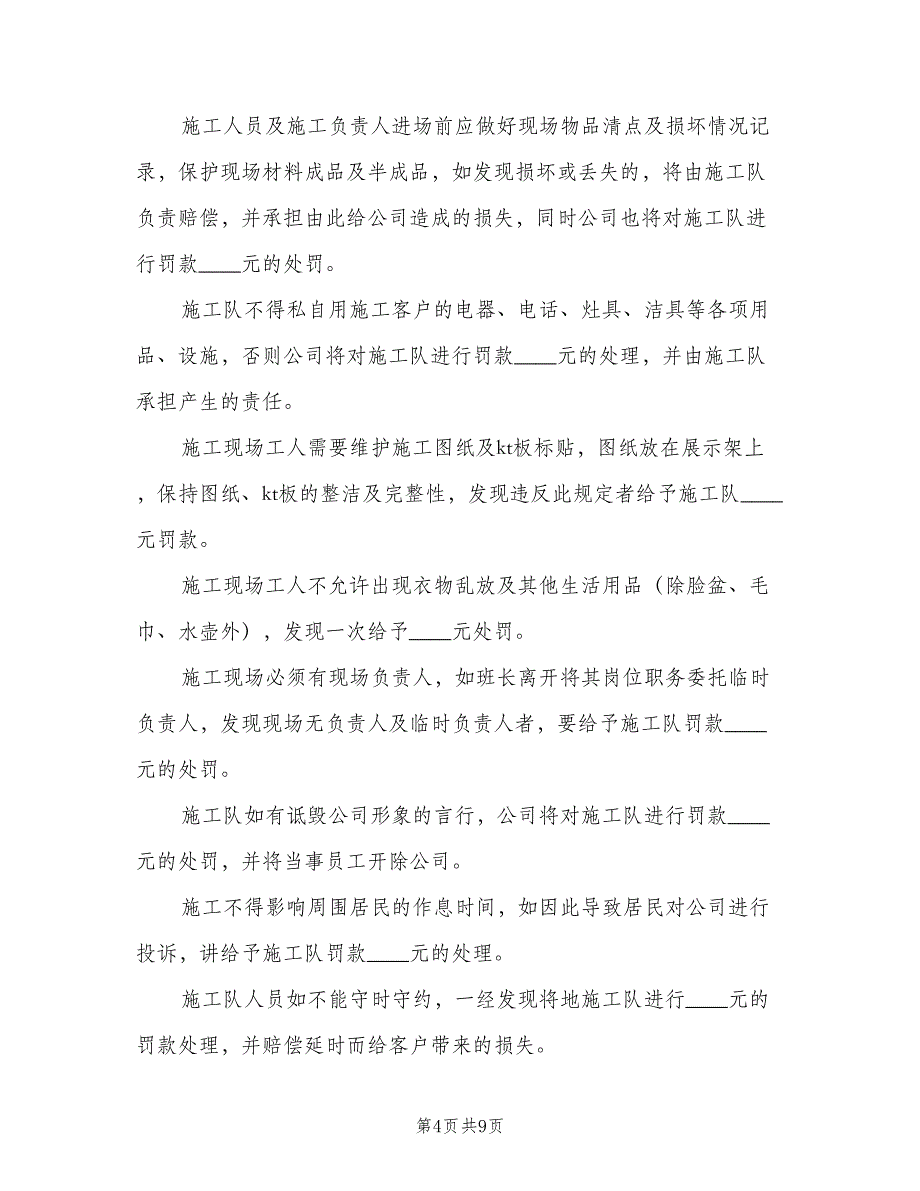 施工人员及施工负责人进场前应做好现场物品清点及损坏情况记
录，保护现场材料成品及半成品，如发现损坏或丢失的，将由施工队
负责赔偿，并承担由此给公司造成的损失，同时公司也将对施工队进
行罚款____元的处罚。
施工队不得私自用施工客户的电器、电话、灶具、洁具等各项用
品、设施，否则公司将对施工队进行罚款____元的处理，并由施工队
承担产生的责任。
施工现场工人需要维护施工图纸及kt板标贴，图纸放在展示架上
，保持图纸、kt板的整洁及完整性，发现违反此规定者给予施工队____
元罚款。
施工现场工人不允许出现衣物乱放及其他生活用品（除脸盆、毛
巾、水壶外），发现一次给予____元处罚。
施工现场必须有现场负责人，如班长离开将其岗位职务委托临时
负责人，发现现场无负责人及临时负责人者，要给予施工队罚款____
元的处罚。
施工队如有诋毁公司形象的言行，公司将对施工队进行罚款____
元的处罚，并将当事员工开除公司。
施工不得影响周围居民的作息时间，如因此导致居民对公司进行
投诉，讲给予施工队罚款____元的处理。
施工队人员如不能守时守约，一经发现将地施工队进行____元的
罚款处理，并赔偿延时而给客户带来的损失。
第4页共9页